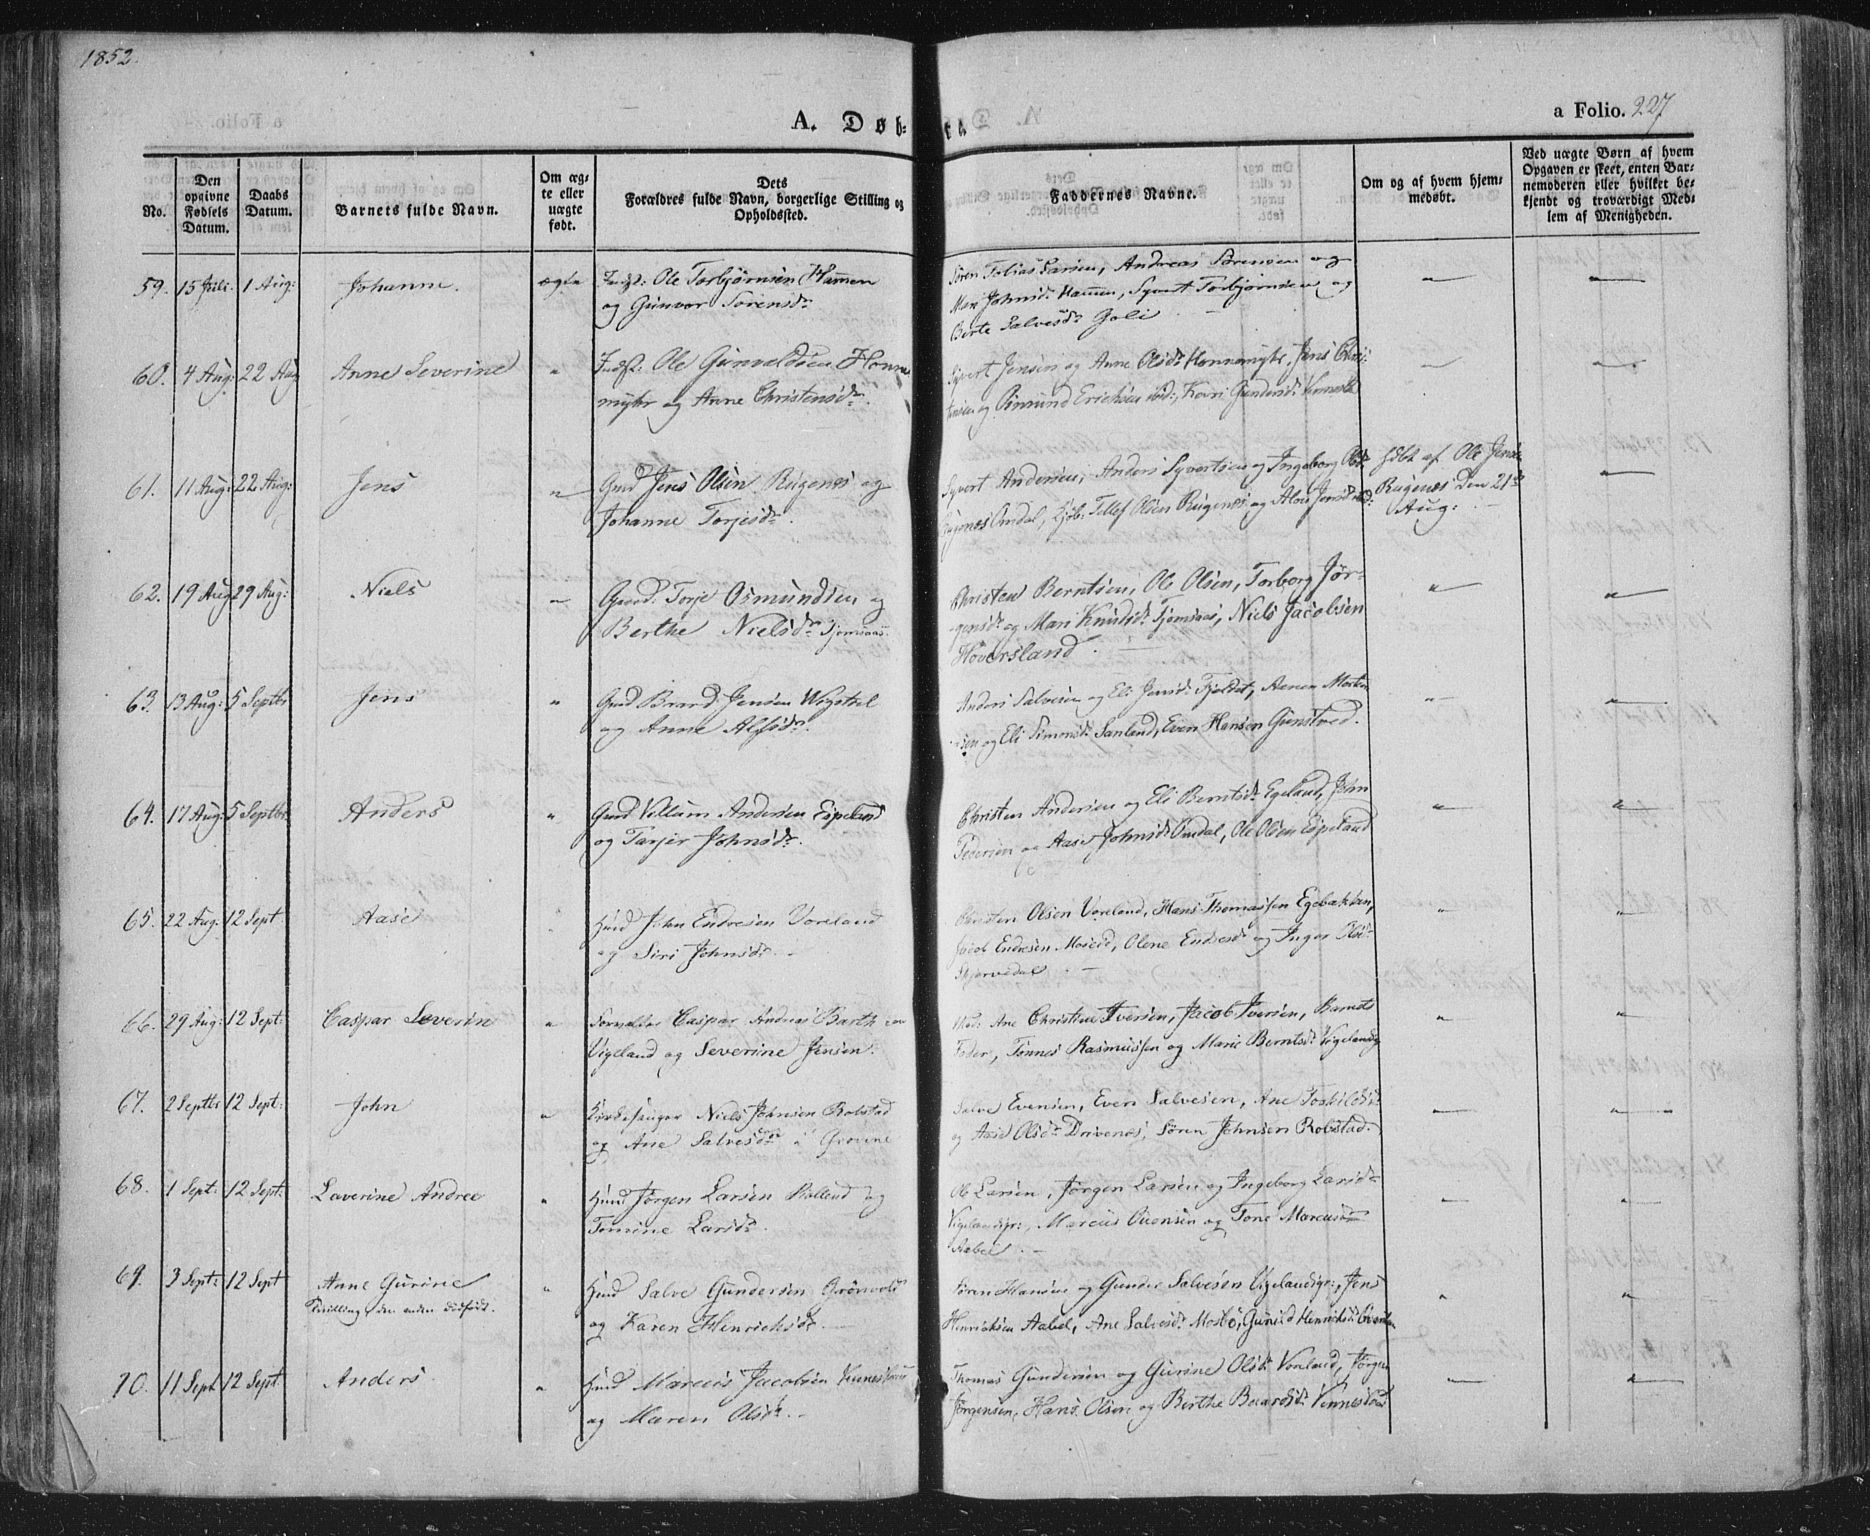 1852.
A. Døb- te
a Folio. 227
No.
Den opgivne Fødsels Datum.
Daabs Datum.
Barnets fulde Navn.
Om ægte eller uægte født.
Dets Forældres fulde Navn, borgerlige Stilling og Opholdssted.
Faddernes Navne.
Om og af hvem hjemmedøbt.
Ved uægte Børn af hvem Opgaven er skeet, enten Barnemoderen eller hvilket bekjendt og troværdigt Medlem af Menigheden.
59. 15 Juli. 1 Aug: Johanne. ægte Ole Torbjørnsen Hamen
og Gunvor Sørensdr.
Søren Tobias Larsen, Andreas Sørensen og
Mari Johnsdr Hamen, Syvert Torbjørnsen og
Berte Salvesdr Goli
60. 4 Aug: 22 Aug Anne Severine " Ole Gunvaldsen Homme
myhr og Anne Christensdr.
Syvert Jensen og Anne Olsdr Hommemyhr, Jens Chri-
stensen og Osmund Erichsen ibid:, Kari Gundersdr
61. 11 Aug: 22 Aug: Jens " Gmd Jens Olsen Rugenes og
Johanne Torjesdr.
Syvert Andersen, Anders Syvertsen og Ingeborg Olsdr
Omdal, Tellef Olsen Rugenes og
døbt af Ole Jensen
Rugenes Den 21de
Aug:
62. 19 Aug 29 Aug: Niels " Gaard. Torje Osmundsen og
Berthe Nielsdr Tjomsaas.
Christen Berntsen, Ole Olsen, Torborg Jør-
gensdr og Mari Knudsdr Tjomsaas, Niels Jacobsen
Höversland.
63. 13 Aug: 5 Septbr Jens " Gmd Brand Jensen Wigstel
og Anne Alfsdr.
Anders Salvesen og Eli Jensdr Aanen Morten
sen og Eli Simonsdr Sanland, Even Hansen Gunstved.
64. 17 Aug: 5 Septbr. Anders " Gmd Villum Andersen Espeland
og Tarjer Johnsdr.
Christen Andersen og Eli Berntsdr Egeland, John
Pedersen og Aase Johnsdr Omdal, Ole Olsen Espeland
65. 22 Aug: 12 Sept. Aase " Huusmd John Endresen Voreland
og Siri Johnsdr.
Christen Olsen Voreland, Hans Thomassen Egebakken,
Jacob Endresen Moseid, Olene Endresdr og Inger Olsdr
Skjervedal
66. 29 Aug: 12 Sept: Caspar Severin " Forvalter Caspar Andreas Barth
Vigeland og Severine Jensen.
Ane Christine Iversen, Jacob Iversen, Barnets
Fader, Tønnes Rasmussen og Marie Berntsdr Vigeland
67. 2 Septbr 12 Sept: John " Kirkesanger Niels Johnsen Robstad
og Ane Salvesdr i Grovene
Salve Evensen, Even Salvesen, Ane Torkildsdr
og Aase Olsdr Drivenes, Søren Johnsen Robstad.
68. 1 Sept: 12 Sept. Laverine Andree " Huusmd Jørgen Larsen Kolland og
Tomine Larsdr.
Ole Larsen, Jørgen Larsen og Ingeborg Larsdr
Marcus Ouensen og Tone Marcusdr
Aabel
69. 3 Sept: 12 Sept Anne Gurine
Tvilling, den anden dødfødt. " Huusmd Salve Gundersen Grønvold
og Karen Henrichsdr
Søren Hansen og Gunder Salvesen Jens
Henrichsen Aabel, Ane Salvesdr Mosbø, Gunild Henrichsdr
70. 11 Sept 12 Sept Anders. " Huusmd Marcus Jacobsen
og Maren Olsdr.
Thomas Gundersen og Gurine Olsdr Voreland, Jørgen
Jørgensen, Hans Olsen og Berthe